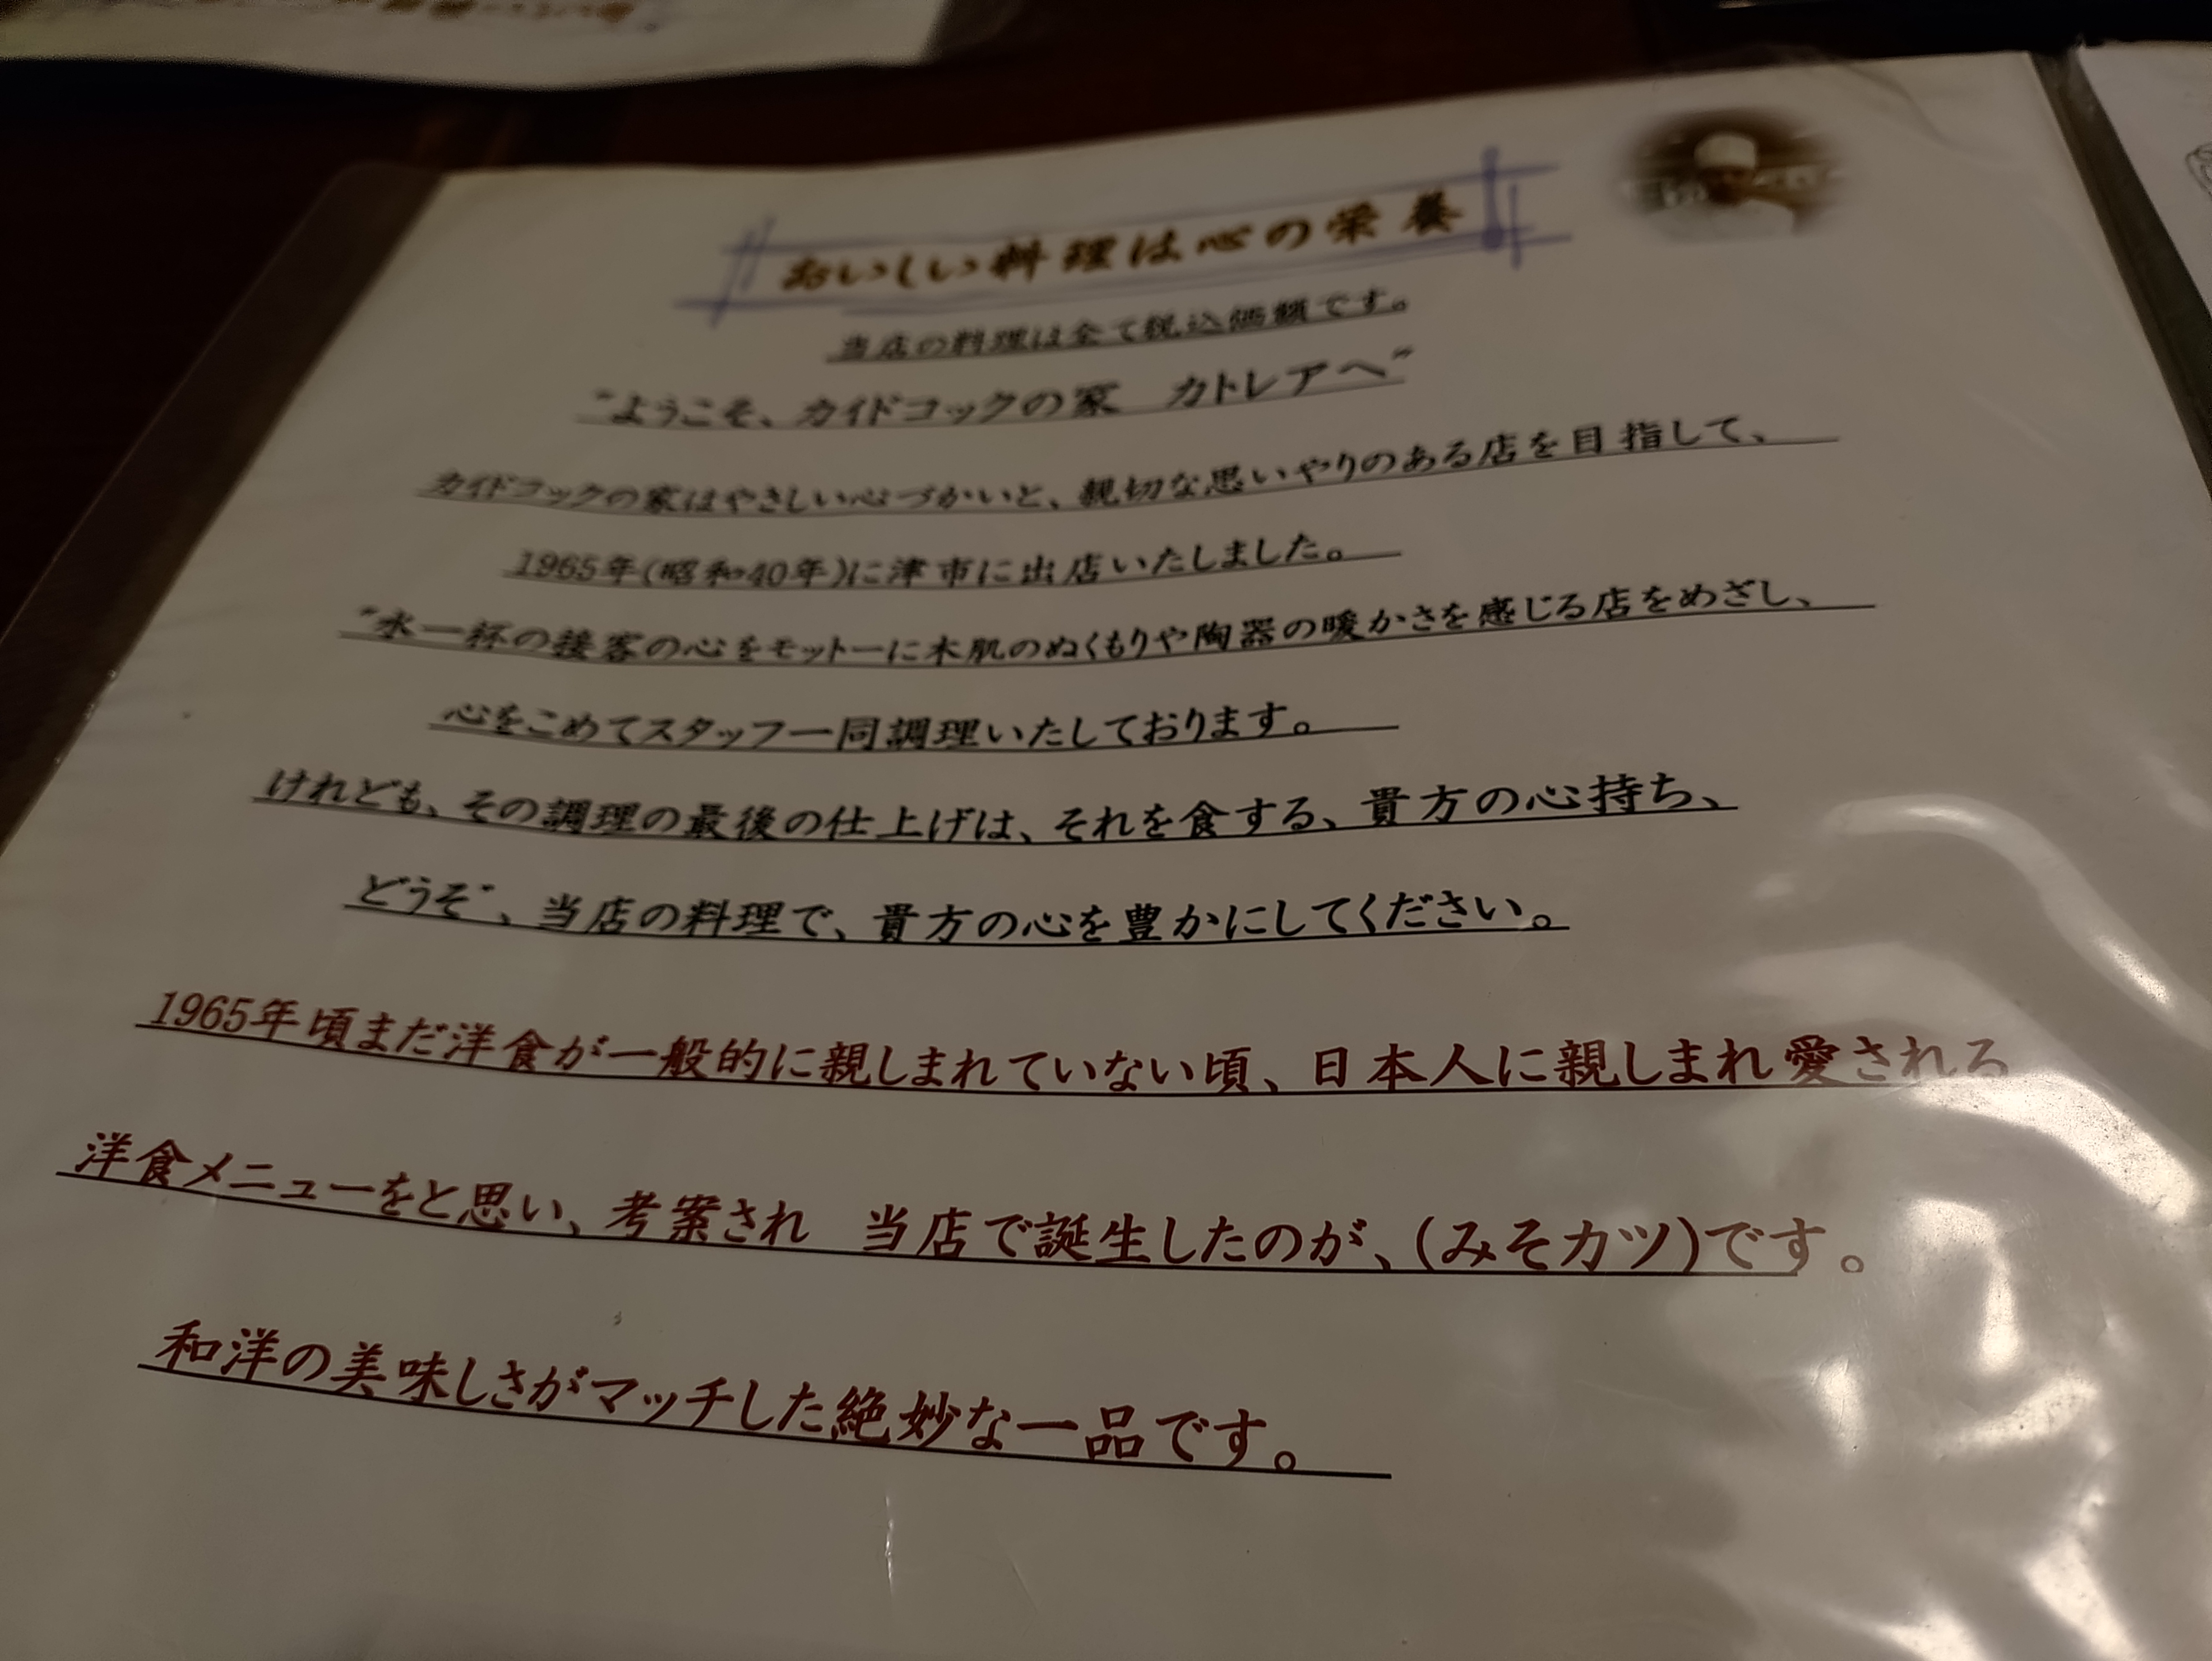 おいしい料理は心の栄養
当店の料理は全て税込価額です。
"ようこそ、カイドコックの家　カトレアへ"
カイドコックの家はやさしい心づかいと、親切な思いやりのある店を目指して、
1965年(昭和40年)に津市に出店いたしました。
"水一杯の接客の心をモットーに木肌のぬくもりや陶器の暖かさを感じる店をめざし、
心をこめてスタッフ一同調理いたしております。
けれども、その調理の最後の仕上げは、それを食する、貴方の心持ち、
どうぞ"、当店の料理で、貴方の心を豊かにしてください。
1965年頃まだ洋食が一般的に親しまれていない頃、日本人に親しまれ愛される
洋食メニューをと思い、考案され　当店で誕生したのが、(みそカツ)です。
和洋の美味しさがマッチした絶妙な一品です。